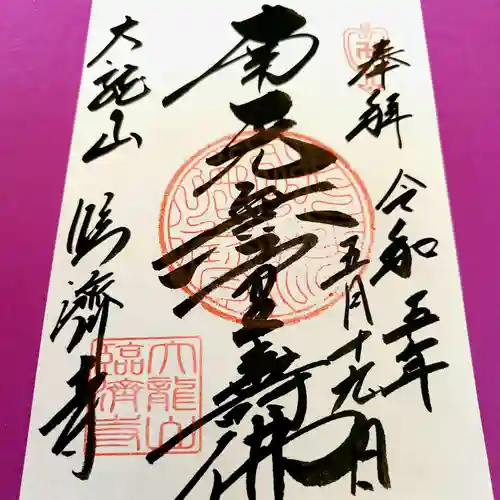 奉拜
令和五年
五月十九日
南无無量壽佛
大龍山
臨濟寺
大龍山
臨濟寺